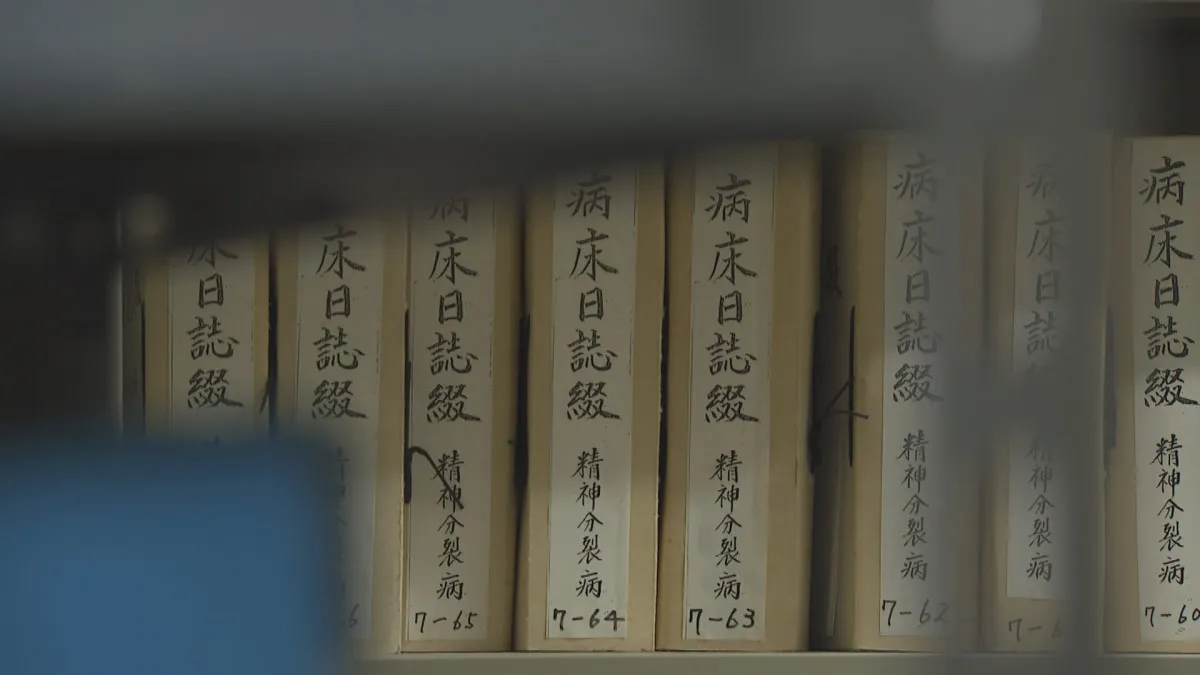 病床日誌綴
精神分裂病
7-60
病床日誌
精神分裂病
7-6
病床日誌綴
精神分裂病
7-62
病床日誌綴
精神分裂病
7-63
病床日誌綴
精神分裂病
7-64
病床日誌綴
精神分裂病
7-65
床日誌綴
6
床日誌綴